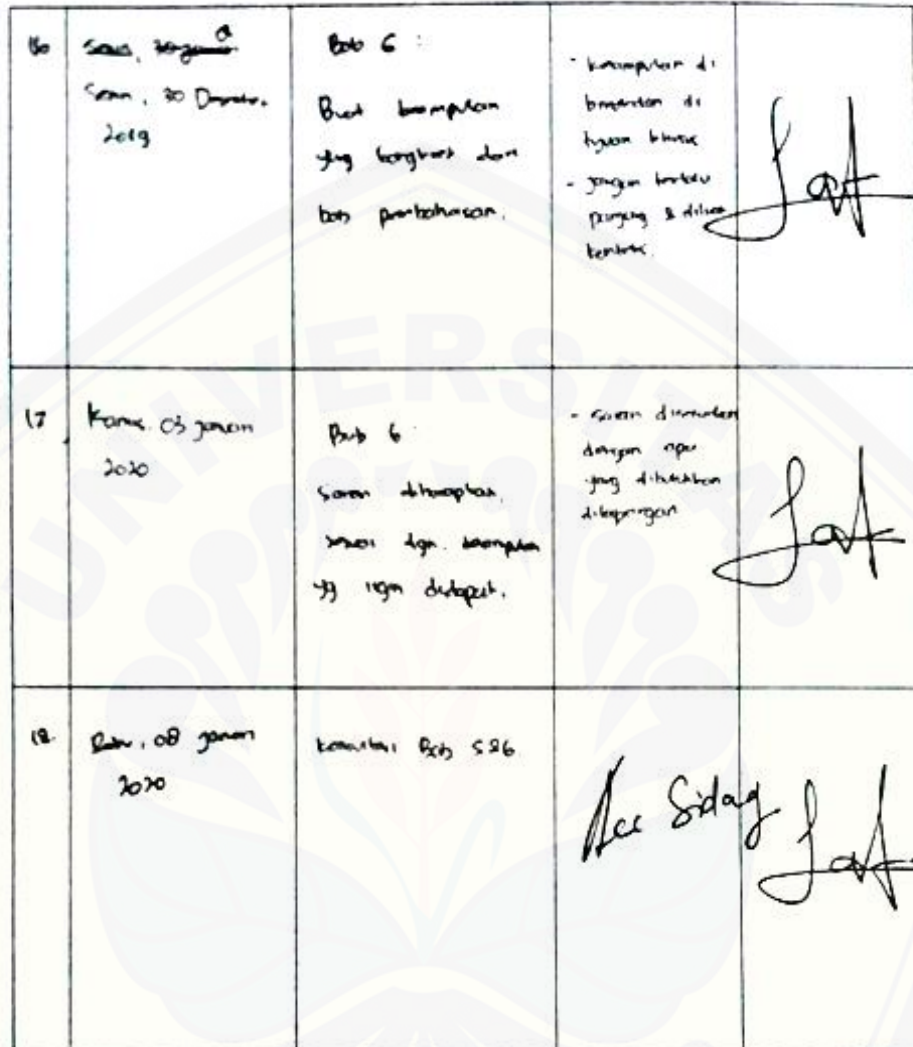 16
Senin, 30 Desember
2019
Bab 6 :
Buat kesimpulan
yang dari
bab pembahasan.
- kesimpulan di
di
tujuan khusus
- jangan terlalu
panjang &
17
Kamis, 03 januari
2020
Bab 6
Saran diharapkan
sesuai dgn. kesimpulan
yg ingin didapat.
- saran
dengan apa
yang dibutuhkan
dilapangan
18
Rabu, 08 januari
2020
konsultasi Bab 5&6
Acc Sidang
UNIVERSITAS